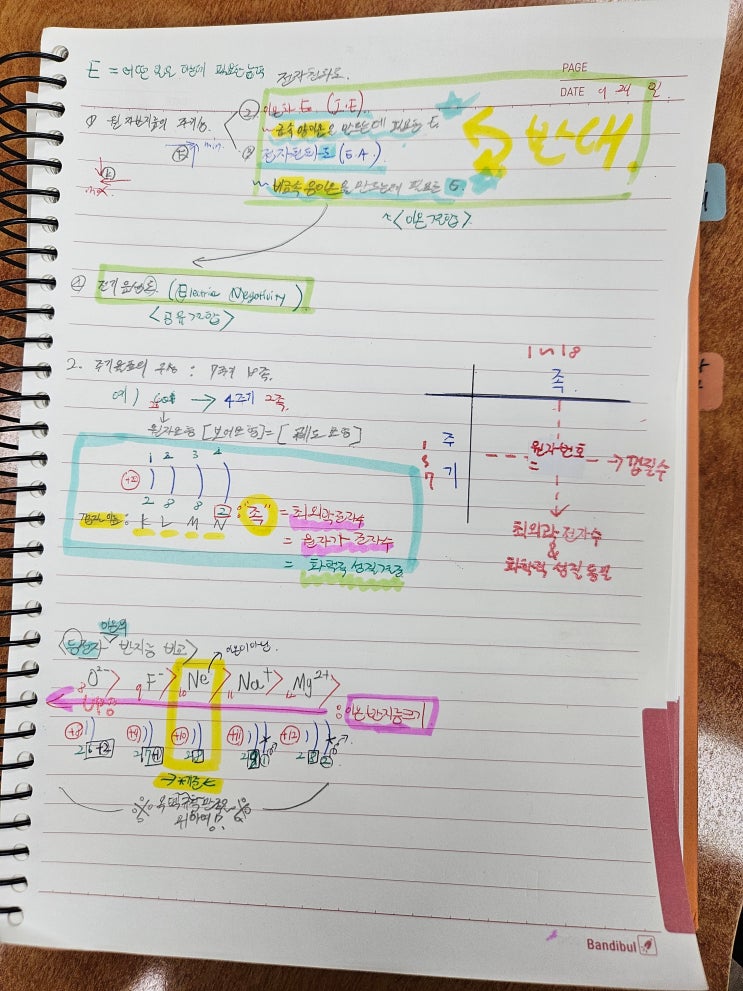 PAGE
DATE 9 24 일
E = 어떤 한데 필요한 능력
전자친화도
① 원자반지름의 주기성
② 이온화 E. (I.E)
~ 금속 양이온을 만드는데 필요한 E.
③ 전자친화도 (E.A)
~ 비금속 음이온을 만드는데 필요한 E.
반대
min
max
<이온결합>
④ 전기음성도 (Electric Negativity)
<공유결합>
2. 주기율표의 구성 : 7주기 18족.
예) → 4주기 2족.
원자모형 [보어모형] = [궤도모형]
1 2 3 4
+20
2 8 8 2
K L M N
: "족" = 최외각전자수
= 원자가 전자수
= 화학적 성질 결정
1~18
족
주기
1 7
원자번호
=
→ 껍질수
최외각 전자수
&
화학적 성질 동일
<등전자 이온의 반지름 비교>
이온이 아님.
8 O²⁻ > 9 F⁻ > 10 Ne > 11 Na⁺ > 12 Mg²⁺
: 이온반지름크기
+8 +9 +10 +11 +12
2 6+2 2 7+1 2 8 2 8 1 2 8 2
→ *기준 ←
옥텟규칙만족을
위하여!
Bandibul